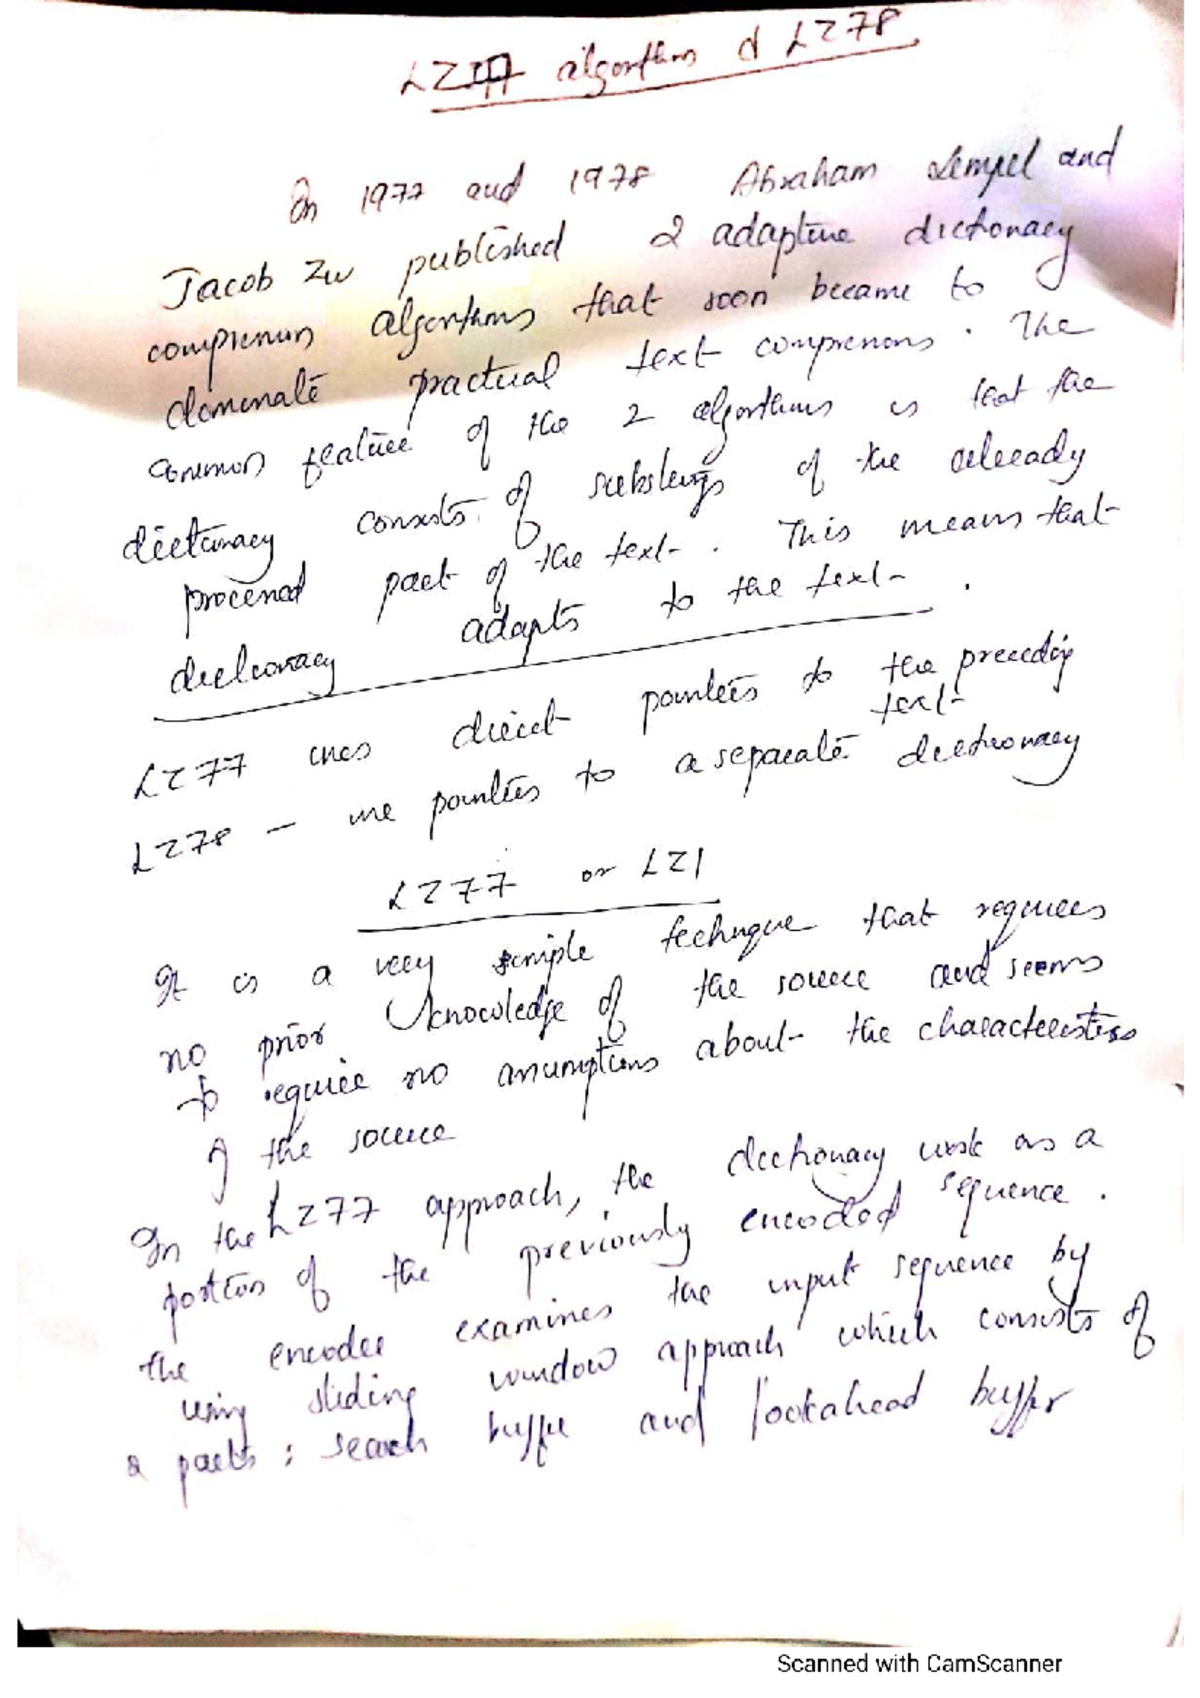 LZ77 algorithm & LZ78
In 1977 and 1978 Abraham Lempel and
Jacob Ziv published 2 adaptive dictionary
compression algorithms that soon became to
dominate practical text compressions. The
common feature of the 2 algorithms is that the
dictionary consists of substrings of the already
processed part of the text. This means that
dictionary adapts to the text.
LZ77 uses direct pointers to the preceding
text
LZ78 - use pointers to a separate dictionary
LZ77 or LZ1
It is a very simple technique that requires
no prior knowledge of the source and seems
to require no assumptions about the characteristics
of the source
In the LZ77 approach, the dictionary work as a
portion of the previously encoded sequence.
the encoder examines the input sequence by
using sliding window approach which consists of
2 parts: search buffer and lookahead buffer
Scanned with CamScanner